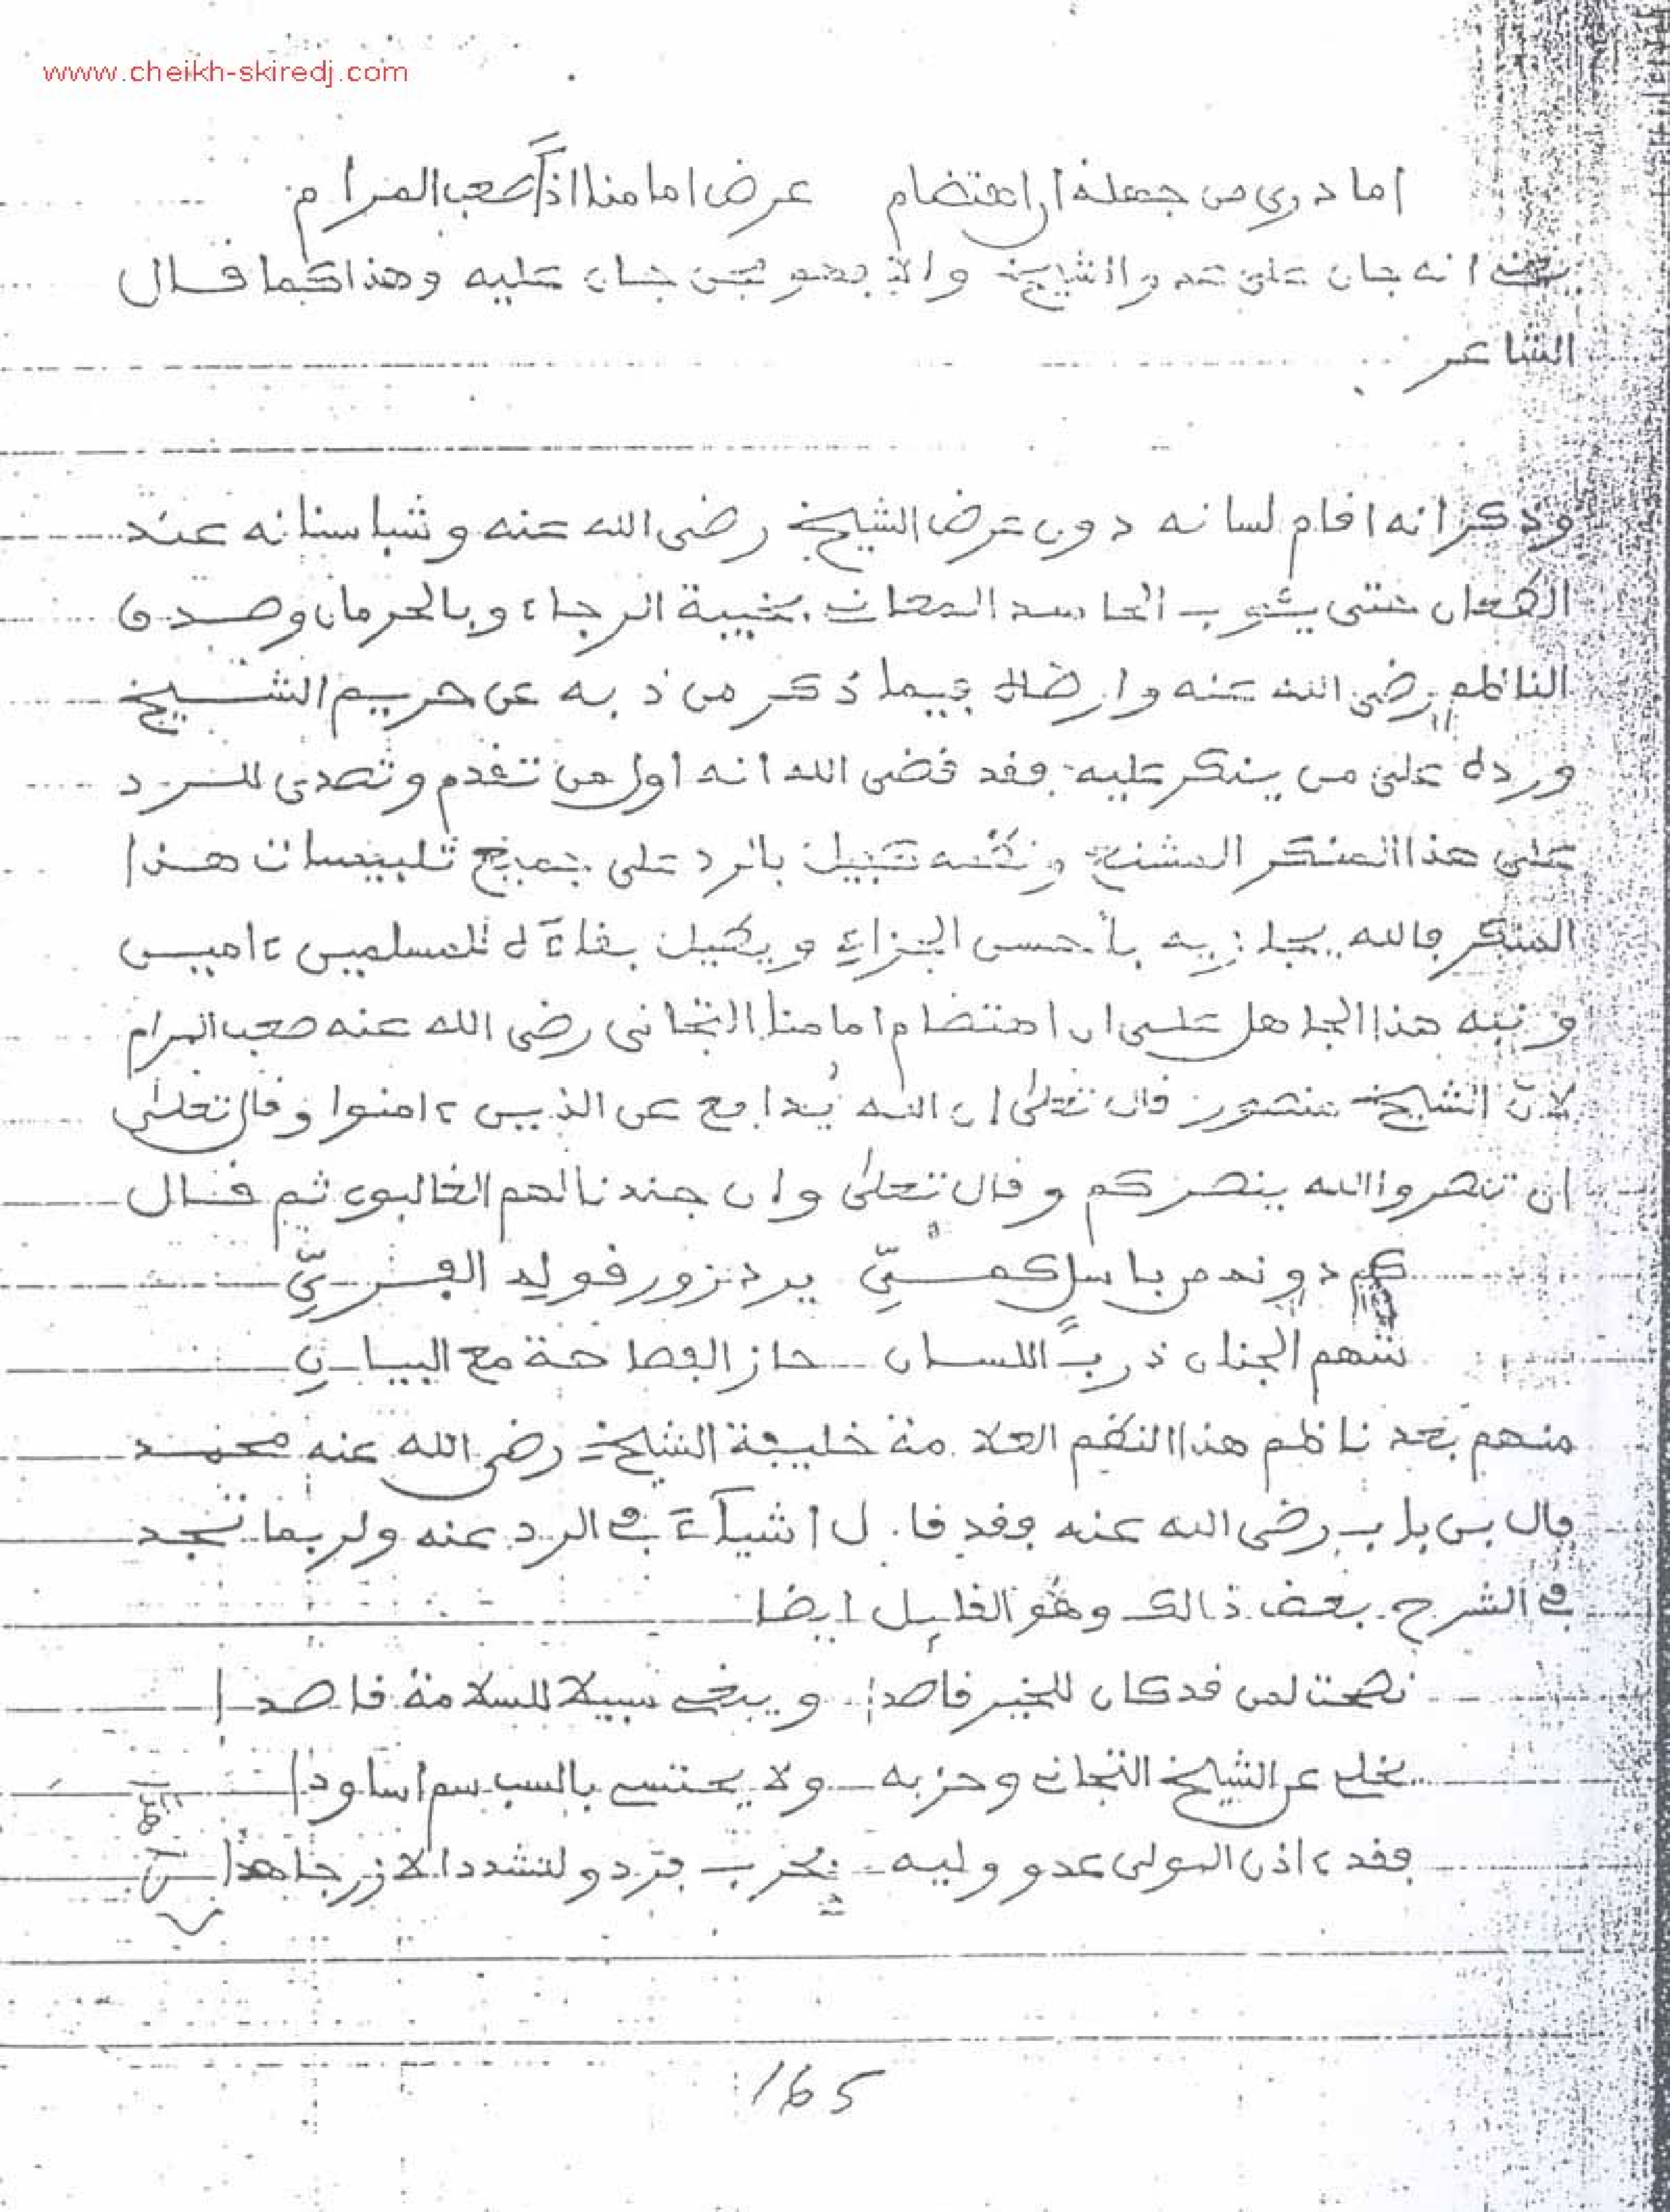 www.cheikh-skiredj.com
اما درى من جهله ان اهتضام عرض امامنا اذا صعب المرام
انه جان على عدو الشيخ والا فهو جان عليه وهذا كما قال
الشاعر
وذكر انه اقام لسانه دون عرض الشيخ رضى الله عنه وشبا سنانه عند
الطعان حتى يئوب الحاسد المعان بخيبة الرجاء وبالحرمان وصدق
الناظم رضى الله عنه وارضاه فيما ذكر من ذبه عن حريم الشيخ
ورده على من ينكر عليه فقد قضى الله انه اول من تقدم وتصدى للرد
على هذا المنكر المشنع ونظمه كفيل بالرد على جميع تلبيسات هذا
المنكر فالله يجازيه بأحسن الجزاء ويطيل بقاءه للمسلمين ءامين
ونبه هذا الجاهل على ان اهتضام امامنا التجانى رضى الله عنه صعب المرام
لان الشيخ منصور قال تعلى ان الله يدافع عن الذين ءامنوا وقال تعلى
ان تنصروا الله ينصركم وقال تعلى وان جندنا لهم الغالبون ثم قال
كم دونه من باسل كمىّ يرد زور قوله الفرىّ
شهم الجنان ذرب اللسان حاز الفصاحة مع البيان
منهم بعد ناظم هذا النظم العلامة خليفة الشيخ رضى الله عنه محمد
فال بن باب رضى الله عنه فقد قال اشياء فى الرد عنه ولربما تجد
فى الشرح بعض ذالك وهو القايل ايضا
نصحت لمن قد كان للخير قاصدا ويبغى سبيلا للسلامة قاصدا
يخلى عن الشيخ التجانى وحزبه ولا يحتسى بالسب سم اساودا
فقد ءاذن المولى عدو وليه بحرب فزدو لتشددا لازر جاهدا
165